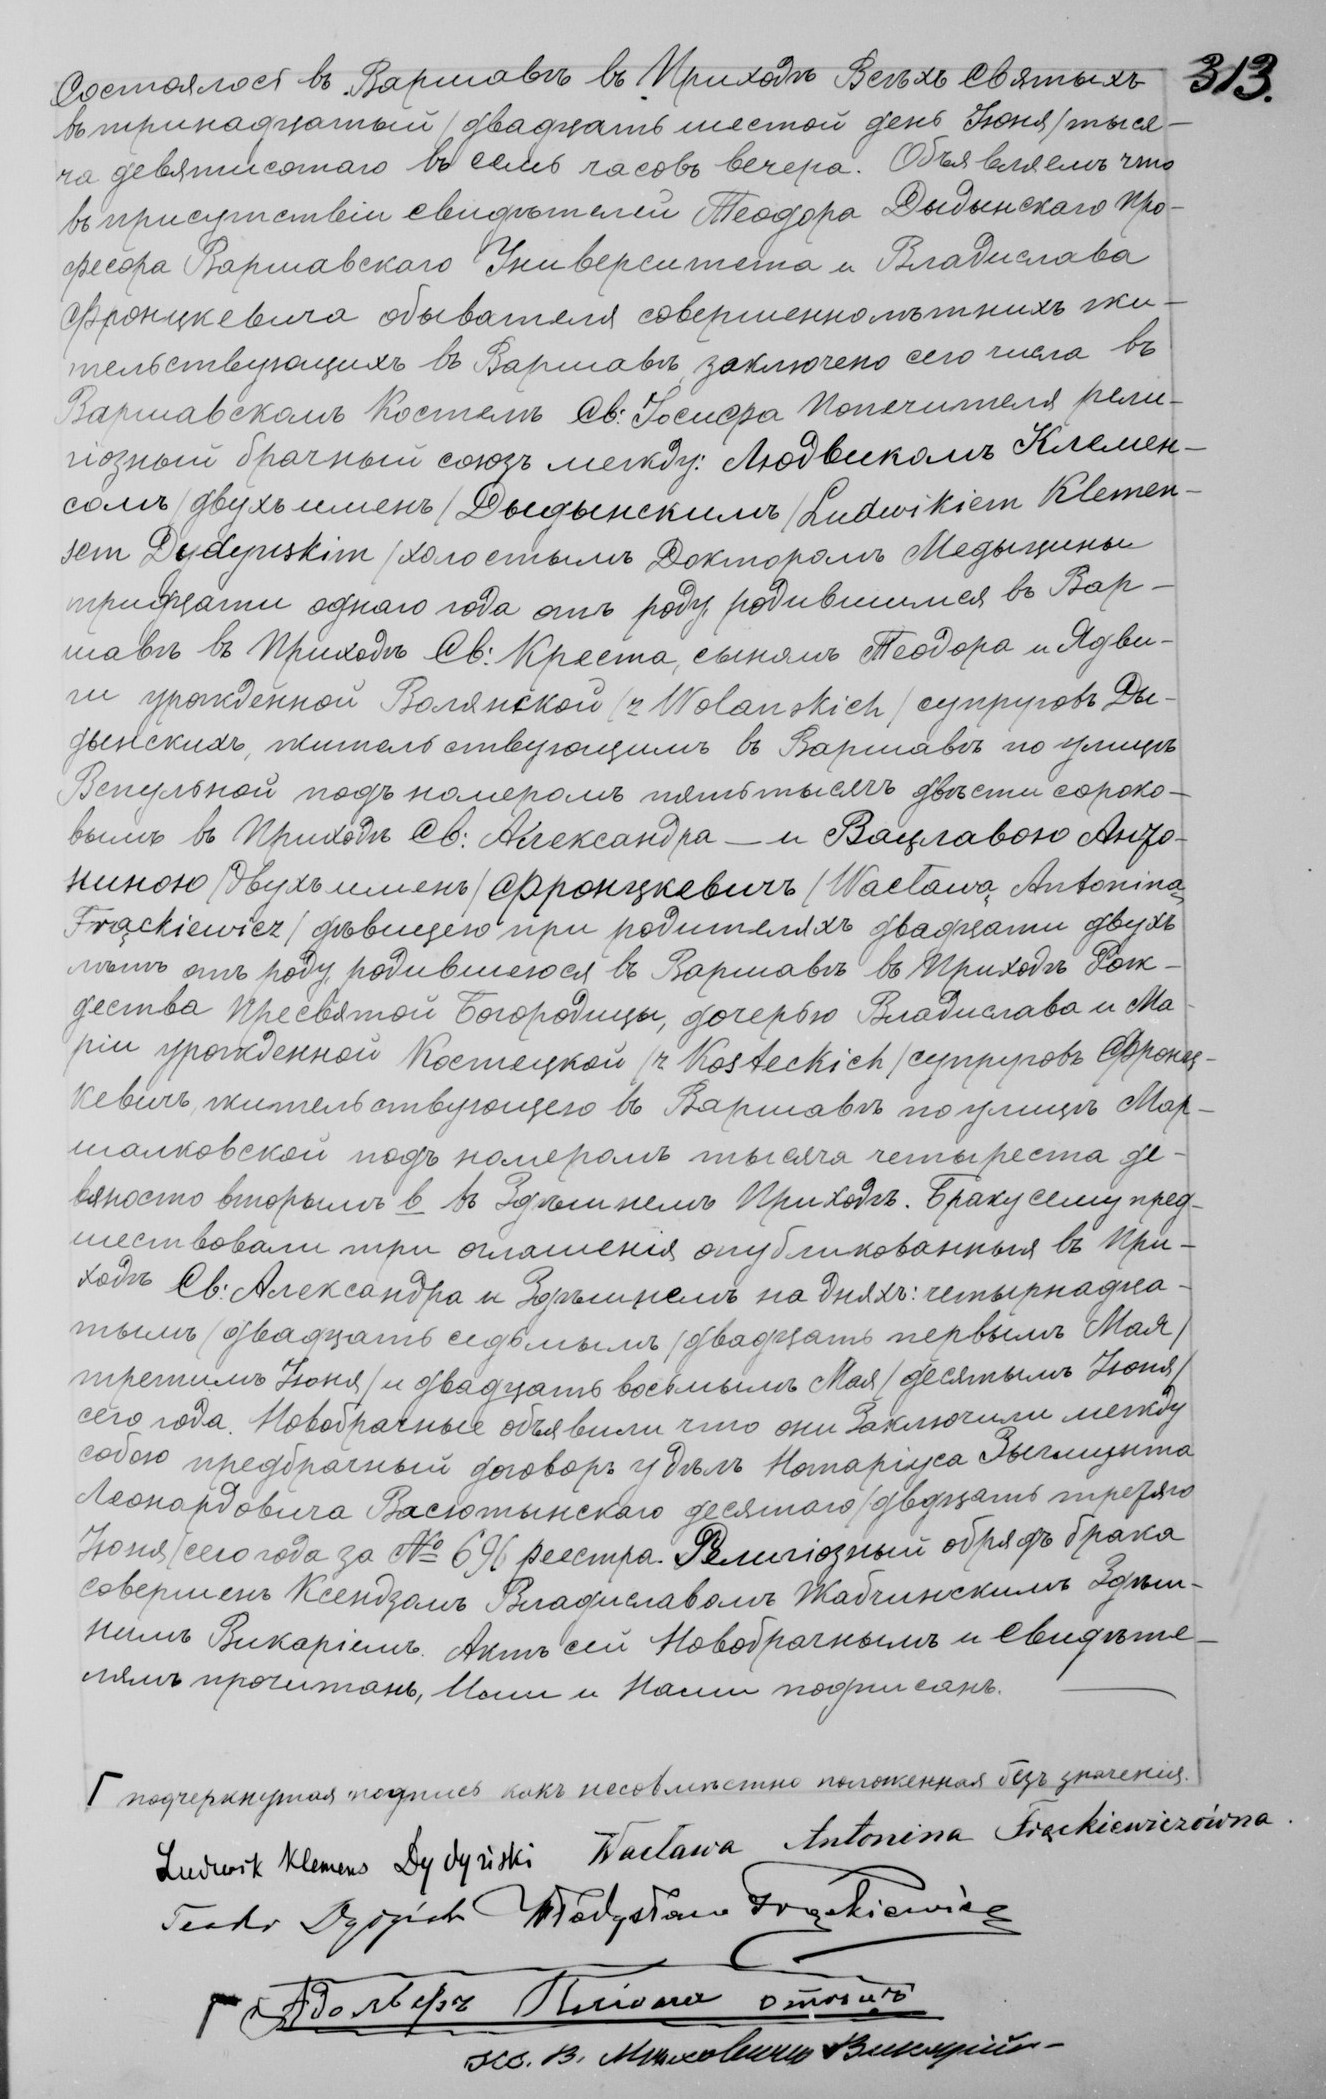 313.
Состоялось въ Варшавѣ въ Приходѣ Всѣхъ Святыхъ
въ тринадцатый /двадцать шестой день Іюня/ тыся-
ча девятисотаго въ семь часовъ вечера. Объявляемъ что
въ присутствіи свидѣтелей Теодора Дыдынскаго Про-
фесора Варшавскаго Университета и Владислава
Фронцкевича обывателя совершеннолѣтнихъ жи-
тельствующихъ въ Варшавѣ, заключено сего числа въ
Варшавскомъ Костелѣ Св: Іосифа Попечителя рели-
гіозный брачный союзъ между: Людвикомъ Клемен-
сомъ /двухъ именъ/ Дыдынскимъ /Ludwikiem Klemen-
sem Dydyńskim/ холостымъ Докторомъ Медыцины
тридцати однаго года отъ роду, родившимся въ Вар-
шавѣ въ Приходѣ Св: Креста, сыномъ Теодора и Ядви-
ги урожденной Волянской /z Wolanskich/ супруговъ Ды-
дынскихъ, жительствующимъ въ Варшавѣ по улицѣ
Вспульной подъ номеромъ пять тысячъ двѣсти сороко-
вымъ въ Приходѣ Св: Александра — и Вацлавою Анто-
ниною /двухъ именъ/ Фронцкевичъ /Wacławą Antoniną
Frąckiewicz/ дѣвицею при родителяхъ двадцати двухъ
лѣтъ отъ роду, родившеюся въ Варшавѣ въ Приходѣ Рож-
дества Пресвятой Богородицы, дочерью Владислава и Ма-
ріи урожденной Костецкой /z Kosteckich/ супруговъ Фронц-
кевичъ, жительствующею въ Варшавѣ по улицѣ Мар-
шалковской подъ номеромъ тысяча четыреста де-
вяносто вторымъ в въ Здѣшнемъ Приходѣ. Браку сему пред-
шествовали три оглашенія опубликованныя въ При-
ходѣ Св: Александра и Здѣшнемъ на дняхъ: четырнадца-
тымъ /двадцать седьмымъ/ двадцать первымъ Мая/
третимъ Іюня/ и двадцать восьмымъ Мая/ десятымъ Іюня/
сего года. Новобрачные объявили что они Заключили между
собою предбрачный договоръ у дѣлъ Нотаріуса Зыгмунта
Леонардовича Васютынскаго десятаго /двдцать третяго
Іюня/ сего года за № 696 реестра. Религіозный обрядъ брака
совершенъ Ксендзомъ Владиславомъ Жабчинскимъ Здѣш-
нимъ Викаріемъ. Актъ сей Новобрачнымъ и Свидѣте-
лямъ прочитанъ, Ими и Нами подписанъ.
Г подчеркнутая подпись какъ несовмѣстно положенная безъ значенія.
Ludwik Klemens Dydyński Wacława Antonina Frąckiewiczówna.
Teodor Dydyński Władysław Frąckiewicz
Г
Кс. В. Викарій